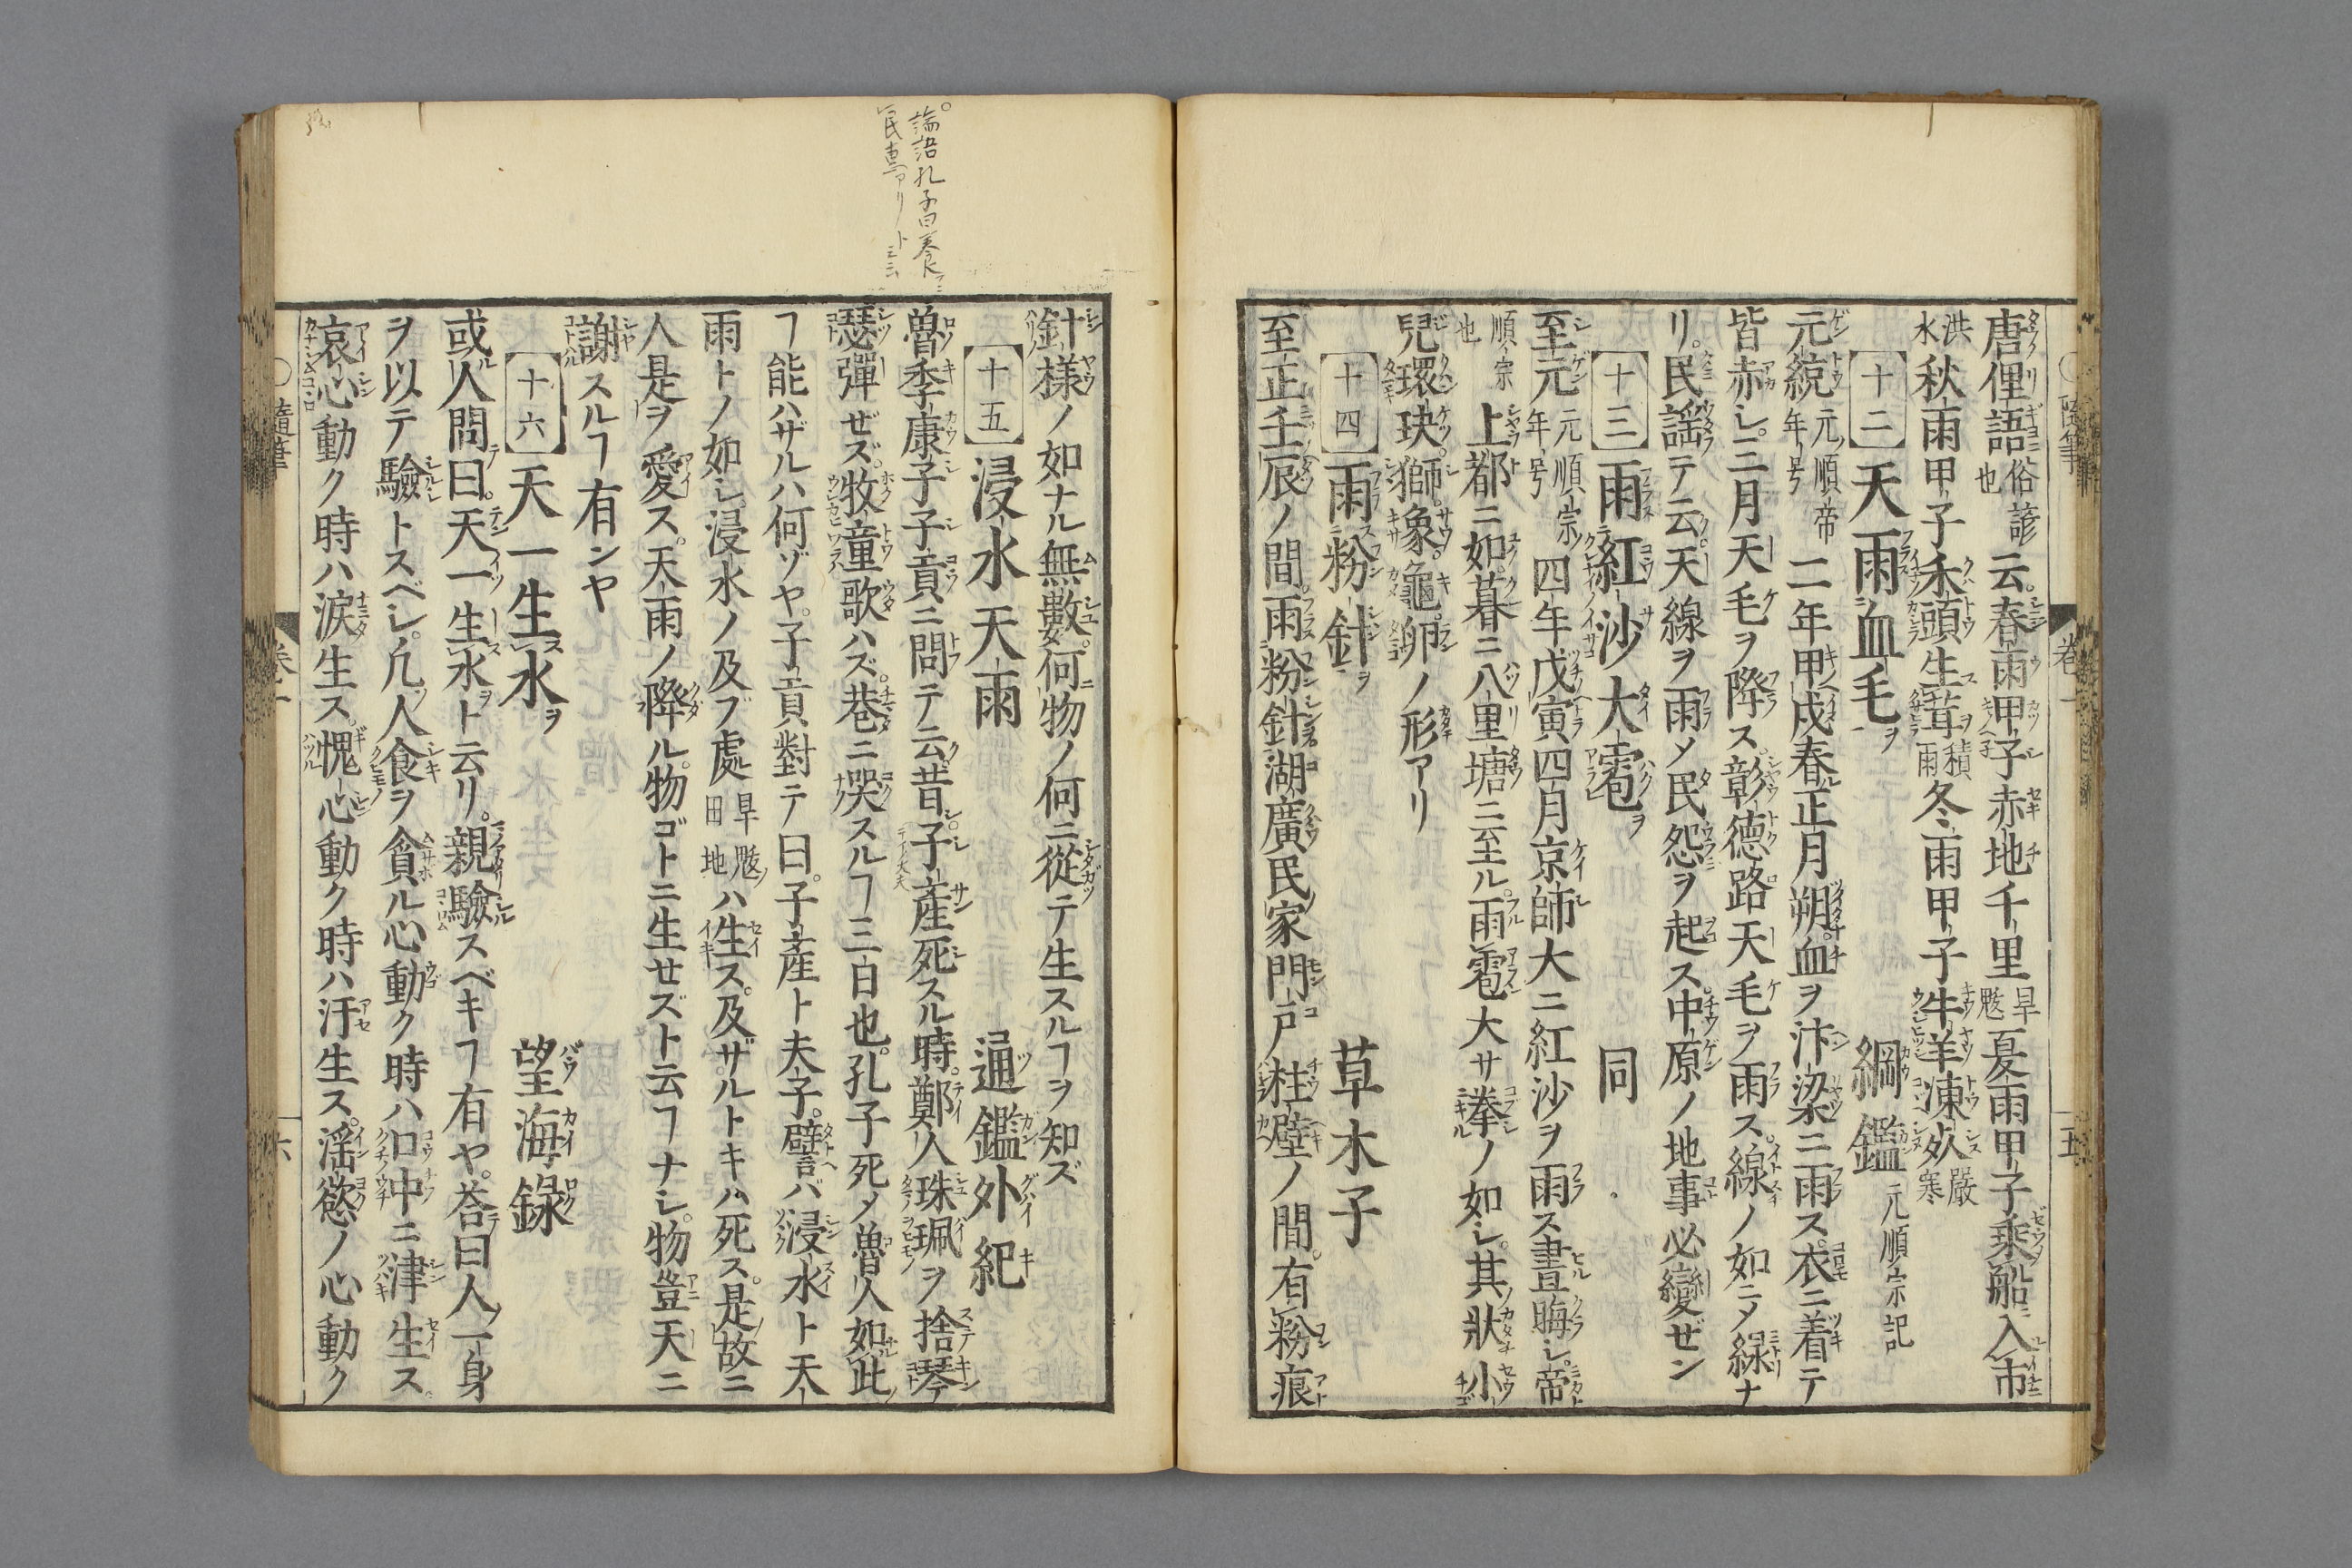 唐俚語俗諺也云春雨甲子赤地千里旱魃夏雨甲子乗船入市
洪水秋雨甲子禾頭生茸積雨冬雨甲子牛羊凍死嚴寒
十二 天雨血毛ヲ 綱鑑 元順宗記
元統元順帝年号二年甲戌春正月朔血ヲ汴梁ニ雨ス衣ニ着テ
皆赤シ三月天毛ヲ降ス彰徳路天毛ヲ雨ス線ノ如ニメ緑ナ
リ民謡テ云天線ヲ雨メ民怨ヲ起ス中原ノ地事必變ゼン
十三 雨紅沙大雹ヲ 同
至元元順宗年号四年戊寅四月京師大ニ紅沙ヲ雨ス晝晦シ帝
順宗也上都ニ如暮ニ八里塘ニ至ル雨雹大サ拳ノ如シ其狀小
兒環玦獅象龜卵ノ形アリ
十四 雨粉針ヲ 草木子
至正壬辰ノ間雨粉針湖廣民家門戸柱壁ノ間有粉痕
針様ノ如ナル無數何物ノ何ニ從テ生スルヿヲ知ズ
十五 浸水天雨 通鑑外紀
魯季康子子貢ニ問テ云昔子産死スル時鄭人珠珮ヲ捨琴
瑟彈ゼズ牧童歌ハズ巷ニ哭スルヿ三日也孔子死メ魯人如此
ヿ能ハザルハ何ゾヤ子貢對テ曰子産ト夫子譬バ浸水ト天
雨トノ如シ浸水ノ及ブ處旱魃ノ田地ハ生ス及ザルトキハ死ス是故ニ
人是ヲ愛ス天雨ノ降ル物ゴトニ生セズト云ヿナシ物豈天ニ
謝スルヿ有ンヤ
十六 天一生水ヲ 望海錄
或人問曰天一生水ヲト云リ親驗スベキヿ有ヤ荅曰人一身
ヲ以テ驗トスベシ凡人食ヲ貪ル心動ク時ハ口中ニ津生ス
哀心動ク時ハ淚生ス愧心動ク時ハ汗生ス淫慾ノ心動ク
隨筆 卷一 六